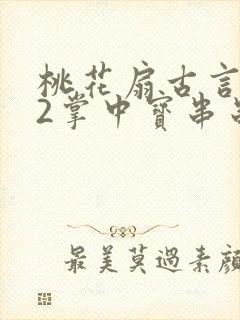 桃花扇古言
2掌中寶串
最美莫過素顏